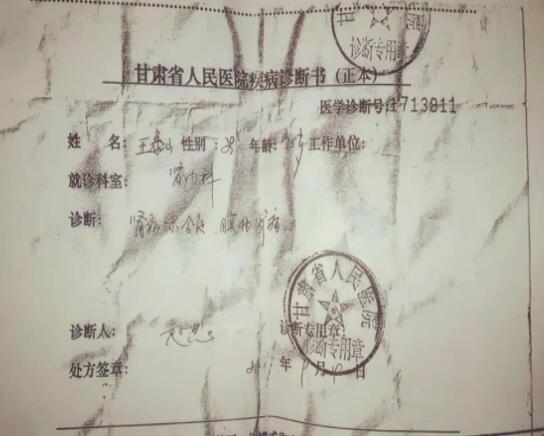 甘肃省人民医院
诊断专用章
甘肃省人民医院疾病诊断书(正本)
医学诊断号:1713811
姓 名: 王 性别: 年龄: 工作单位:
就诊科室: 肾内科
诊断: 肾病综合征 膜性肾病
甘肃省人民医院
诊断专用章
诊断人: 诊断专用章
处方签章: 年 月 日